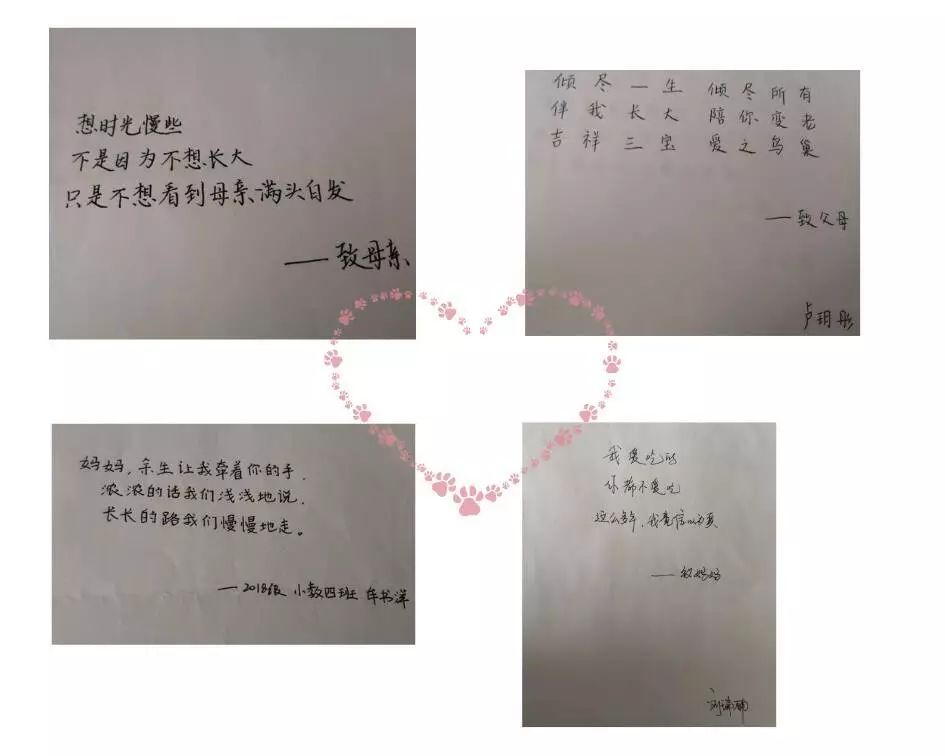 想时光慢些
不是因为不想长大
只是不想看到母亲满头白发
——致母亲
倾尽一生 倾尽所有
伴我长大 陪你变老
吉祥三宝 爱之鸟巢
——致父母
卢玥彤
妈妈,余生让我牵着你的手,
浓浓的话我们浅浅地说,
长长的路我们慢慢地走。
——2018级 小教四班 牟书洋
我爱吃的
你都不爱吃
这么多年,我竟信以为真
——致妈妈